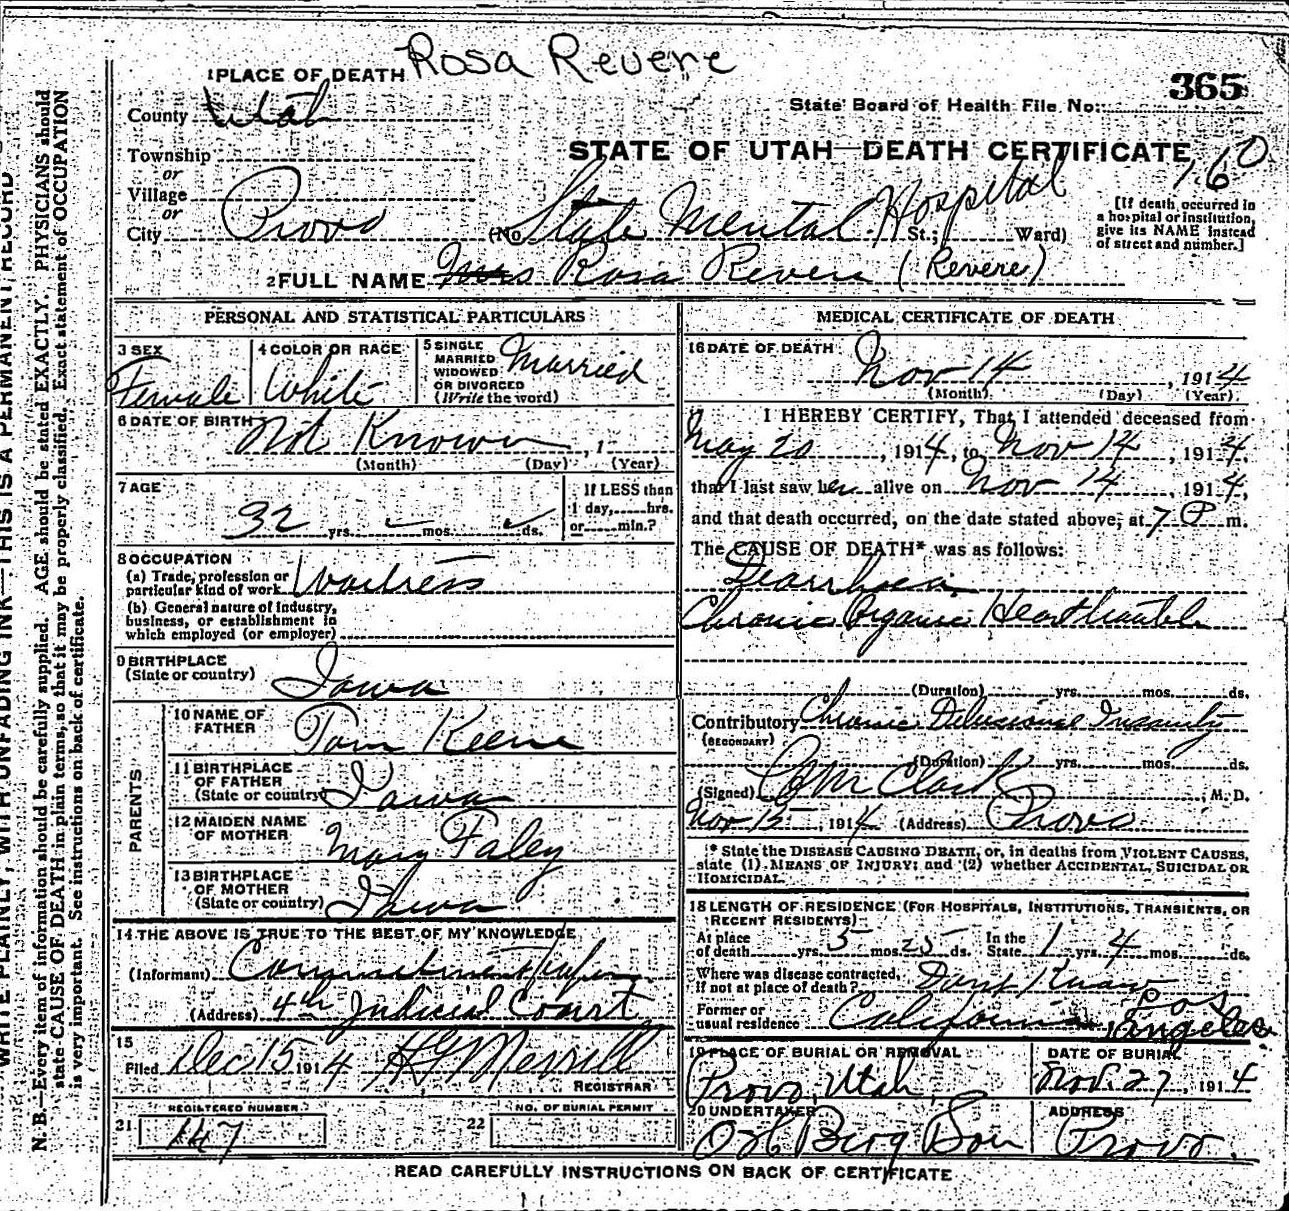 Rosa Revere
1 PLACE OF DEATH
365
State Board of Health File No.
County Utah
STATE OF UTAH—DEATH CERTIFICATE
160
Township
or
Village
or
City Provo (No. State Mental Hospital St.; Ward)
[If death occurred in
a hospital or institution,
give its NAME instead
of street and number.]
2 FULL NAME Mrs Rosa Revere (Revere)
PERSONAL AND STATISTICAL PARTICULARS
3 SEX
Female
4 COLOR OR RACE
White
5 SINGLE
MARRIED
WIDOWED
OR DIVORCED
(Write the word)
Married
6 DATE OF BIRTH Not Known, 1
(Month) (Day) (Year)
7 AGE
32 yrs. mos. ds.
If LESS than
1 day, hrs.
or min.?
8 OCCUPATION
(a) Trade, profession or
particular kind of work Waitress
(b) General nature of industry,
business, or establishment in
which employed (or employer)
9 BIRTHPLACE
(State or country) Iowa
PARENTS
10 NAME OF
FATHER Tom Keene
11 BIRTHPLACE
OF FATHER
(State or country) Iowa
12 MAIDEN NAME
OF MOTHER Mary Faley
13 BIRTHPLACE
OF MOTHER
(State or country) Iowa
14 THE ABOVE IS TRUE TO THE BEST OF MY KNOWLEDGE
(Informant) Commitment Papers
(Address) 4th Judicial Court
15
Filed Dec 15 1914 Merrill
REGISTRAR
REGISTERED NUMBER
21 147
NO. OF BURIAL PERMIT
22
MEDICAL CERTIFICATE OF DEATH
16 DATE OF DEATH
Nov 14, 1914
(Month) (Day) (Year)
17 I HEREBY CERTIFY, That I attended deceased from
May 20, 1914, to Nov 14, 1914,
that I last saw her alive on Nov 14, 1914,
and that death occurred, on the date stated above, at 7 P m.
The CAUSE OF DEATH* was as follows:
Diarrhoea
Chronic Organic Heart
(Duration) yrs. mos. ds.
Contributory Chronic Delusional Insanity
(SECONDARY)
(Duration) yrs. mos. ds.
(Signed) Clark, M. D.
Nov 15, 1914 (Address) Provo
* State the DISEASE CAUSING DEATH, or, in deaths from VIOLENT CAUSES,
state (1) MEANS OF INJURY; and (2) whether ACCIDENTAL, SUICIDAL OR
HOMICIDAL.
18 LENGTH OF RESIDENCE (FOR HOSPITALS, INSTITUTIONS, TRANSIENTS, OR
RECENT RESIDENTS)
At place
of death yrs. 5 mos. 25 ds.
In the
State 1 yrs. 4 mos. ds.
Where was disease contracted,
if not at place of death? Dont Know
Former or
usual residence California, Los Angeles
19 PLACE OF BURIAL OR REMOVAL
Provo, Utah
DATE OF BURIAL
Nov. 27, 1914
20 UNDERTAKER
Berg Son
ADDRESS
Provo.
READ CAREFULLY INSTRUCTIONS ON BACK OF CERTIFICATE
WRITE PLAINLY, WITH UNFADING INK—THIS IS A PERMANENT RECORD
N. B.—Every item of information should be carefully supplied. AGE should be stated EXACTLY. PHYSICIANS should
state CAUSE OF DEATH in plain terms, so that it may be properly classified. Exact statement of OCCUPATION
is very important. See instructions on back of certificate.